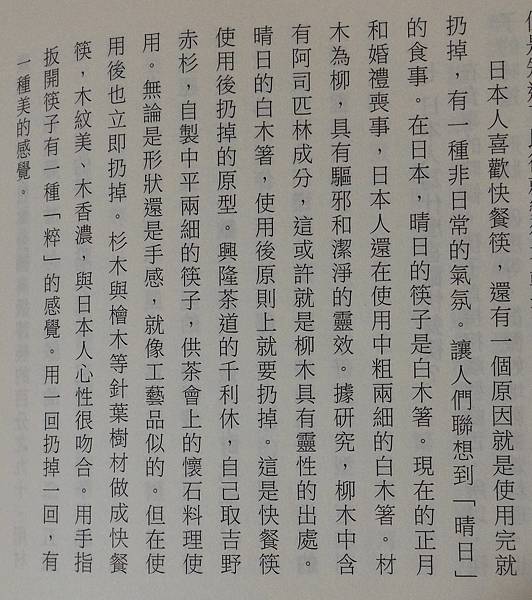 日本人喜歡快餐筷，還有一個原因就是使用完就
扔掉，有一種非日常的氣氛。讓人們聯想到「晴日」
的食事。在日本，晴日的筷子是白木箸。現在的正月
和婚禮喪事，日本人還在使用中粗兩細的白木箸。材
木為柳，具有驅邪和潔淨的靈效。據研究，柳木中含
有阿司匹林成分，這或許就是柳木具有靈性的出處。
晴日的白木箸，使用後原則上就要扔掉。這是快餐筷
使用後扔掉的原型。興隆茶道的千利休，自己取吉野
赤杉，自製中平兩細的筷子，供茶會上的懷石料理使
用。無論是形狀還是手感，就像工藝品似的。但在使
用後也立即扔掉。杉木與檜木等針葉樹材做成快餐
筷，木紋美、木香濃，與日本人心性很吻合。用手指
扳開筷子有一種「粹」的感覺。用一回扔掉一回，有
一種美的感覺。